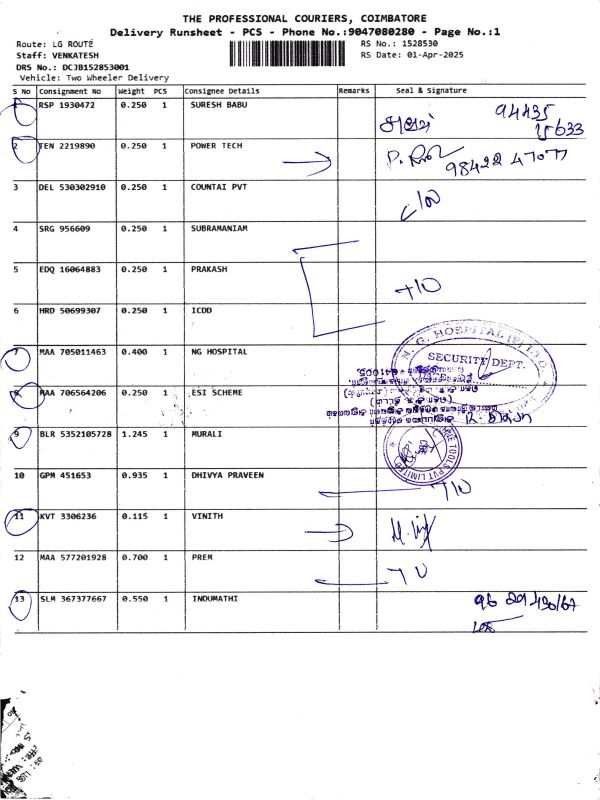 THE PROFESSIONAL COURIERS, COIMBATORE
Delivery Runsheet - PCS - Phone No.:9047080280 - Page No.:1
Route: LG ROUTE
RS No.: 1528530
Staff: VENKATESH
RS Date: 01-Apr-2025
DRS No.: DCJB152853001
Vehicle: Two Wheeler Delivery
S No Consignment No Weight PCS Consignee Details Remarks Seal & Signature
1 RSP 1930472 0.250 1 SURESH BABU
94435
15633
2 TEN 2219890 0.250 1 POWER TECH
98422 47077
3 DEL 530302910 0.250 1 COUNTAI PVT
4 SRG 956609 0.250 1 SUBRAMANIAM
5 EDQ 16064883 0.250 1 PRAKASH
6 HRD 50699307 0.250 1 ICDD
7 MAA 705011463 0.400 1 NG HOSPITAL
N. G. HOSPITAL (P) LTD.
SECURITY DEPT.
8 MAA 706564206 0.250 1 ESI SCHEME
9 BLR 5352105728 1.245 1 MURALI
TOOLS PVT LIMITED
10 GPM 451653 0.935 1 DHIVYA PRAVEEN
11 KVT 3306236 0.115 1 VINITH
12 MAA 577201928 0.700 1 PREM
13 SLM 367377667 0.550 1 INDUMATHI